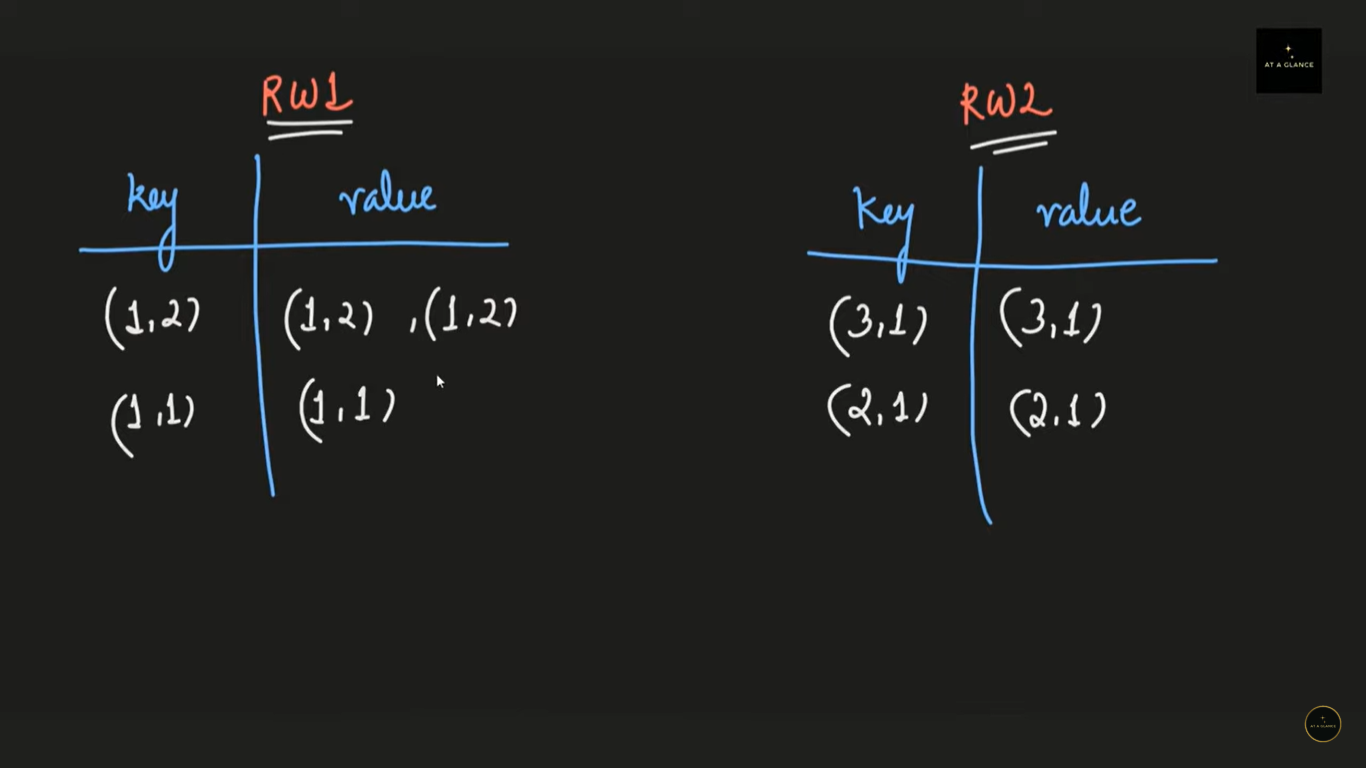 AT A GLANCE
RW1
key value
(1,2) (1,2) ,(1,2)
(1,1) (1,1)
RW2
key value
(3,1) (3,1)
(2,1) (2,1)
AT A GLANCE